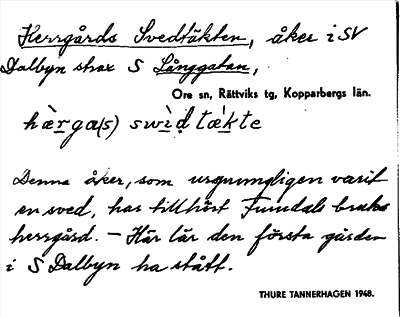 Herrgårds Svedtäkten, åker i SV
Dalbyn strax S Långgatan,
Ore sn, Rättviks tg, Kopparbergs län.
hæ̀rga(s) swìḍtæ̀kte
Denna åker, som ursprungligen varit
en sved, har tillhört Furudals bruks
herrgård. – Här lär den första gården
i S Dalbyn ha stått.
THURE TANNERHAGEN 1948.